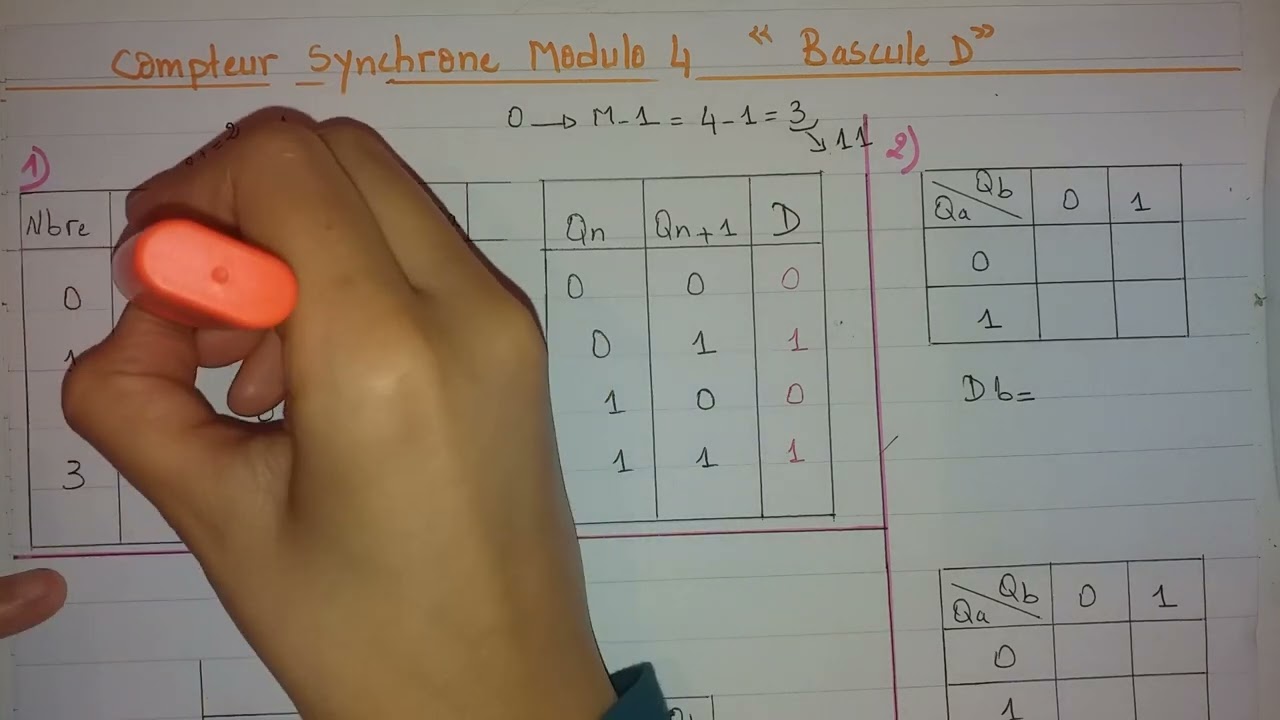 Compteur Synchrone Modulo 4 « Bascule D »
0 → M-1 = 4-1 = 3
↘ 11
1)
Nbre
0
1
3
Qn Qn+1 D
0 0 0
0 1 1
1 0 0
1 1 1
2)
Qb
Qa 0 1
0
1
Db=
Qb
Qa 0 1
0
1